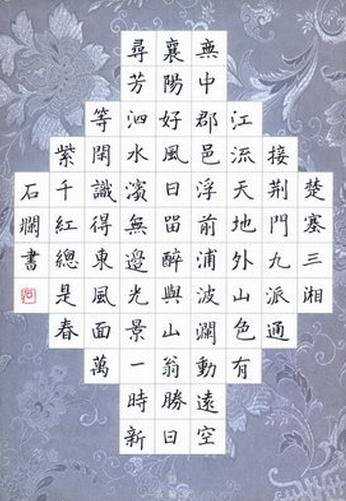 楚塞三湘
接荊門九派通
江流天地外山色有
無中郡邑浮前浦波瀾動遠空
襄陽好風日留醉與山翁勝日
尋芳泗水濱無邊光景一時新
等閑識得東風面萬
紫千紅總是春
石斕書